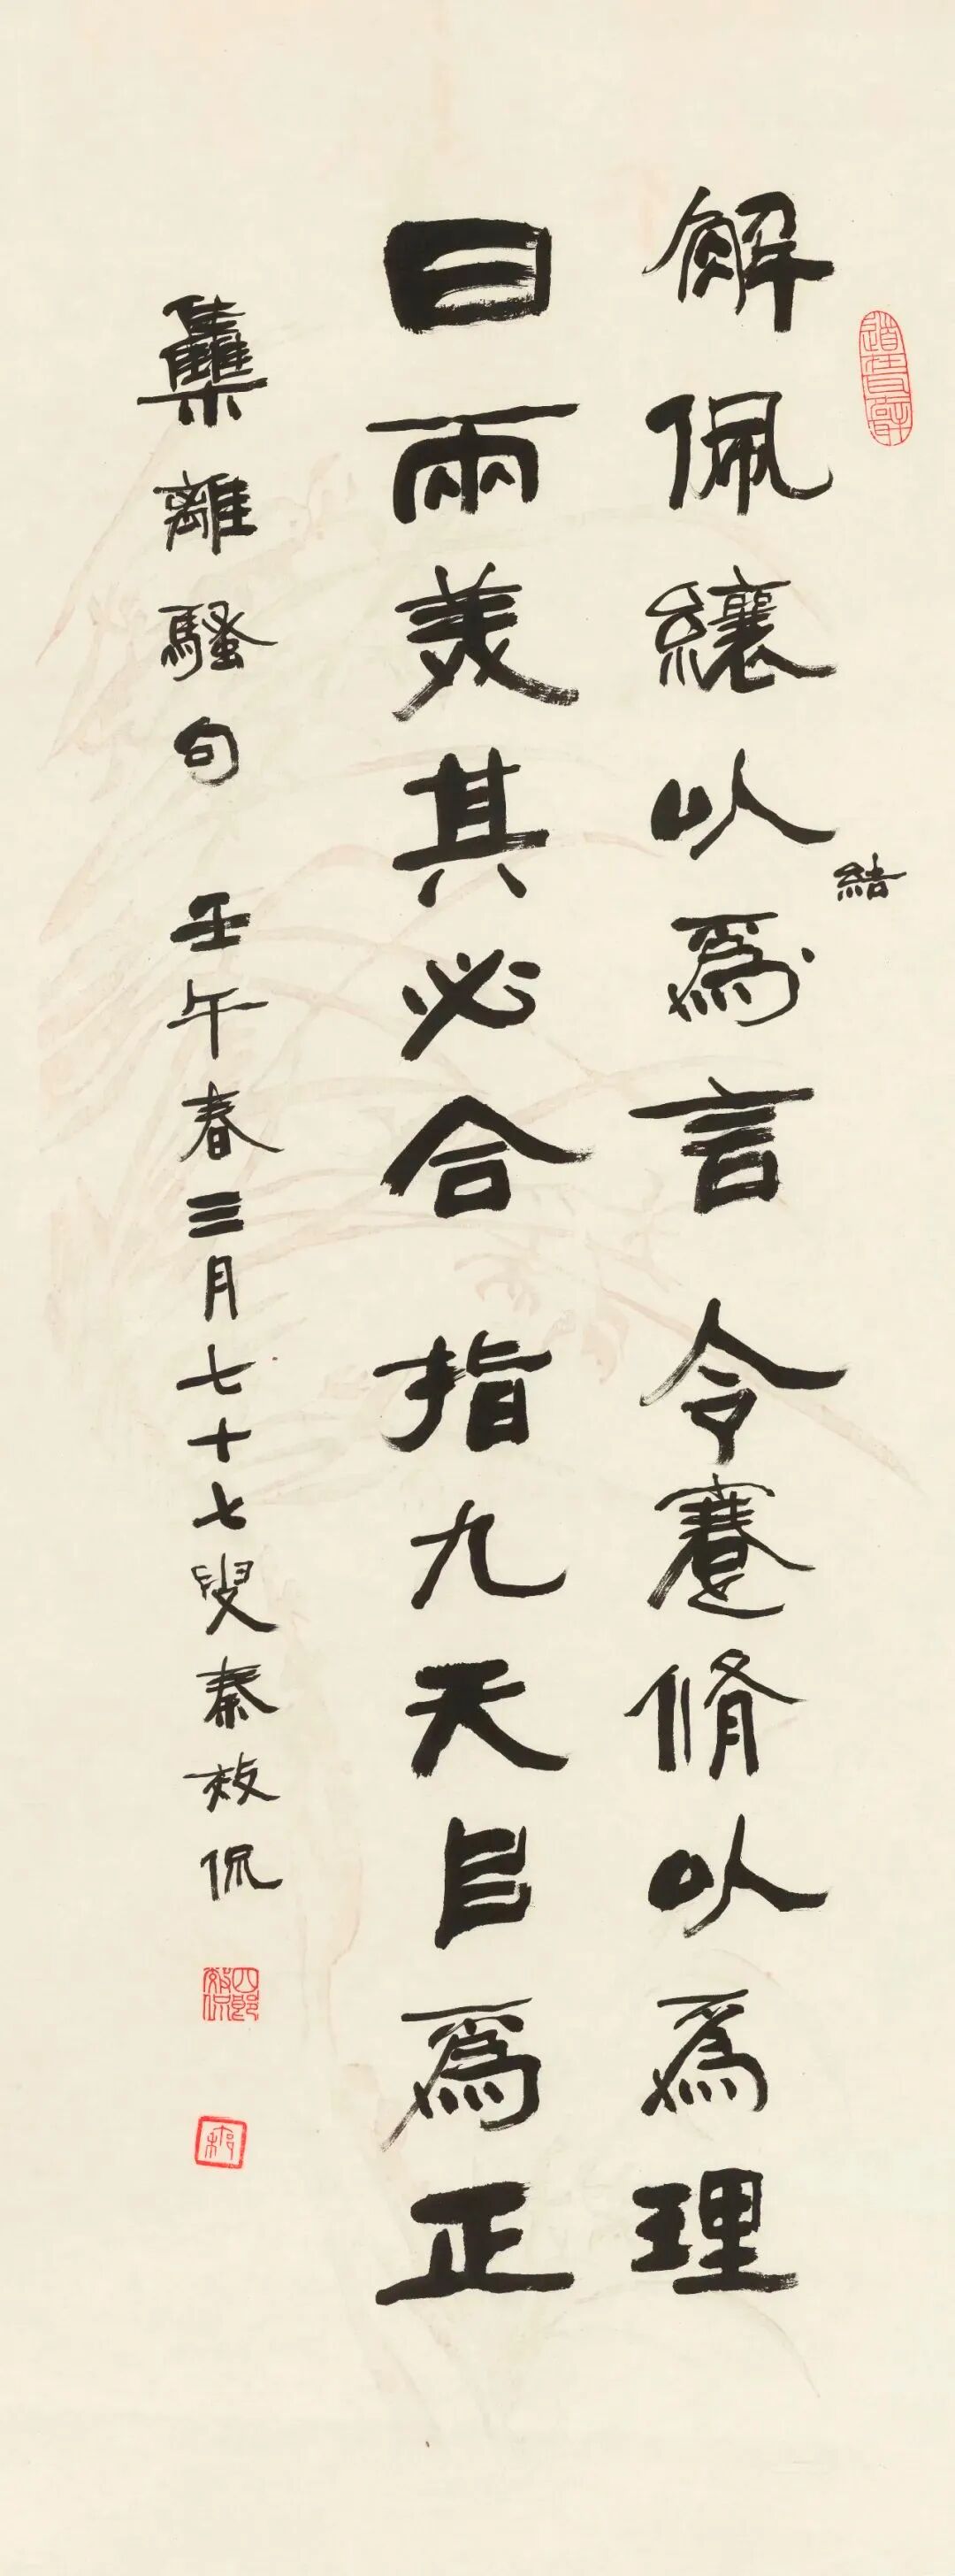 解佩纕以爲言 令蹇脩以爲理
結
曰兩美其必合 指九天㠯爲正
雧離騷句 壬午春三月七十七叟秦效侃